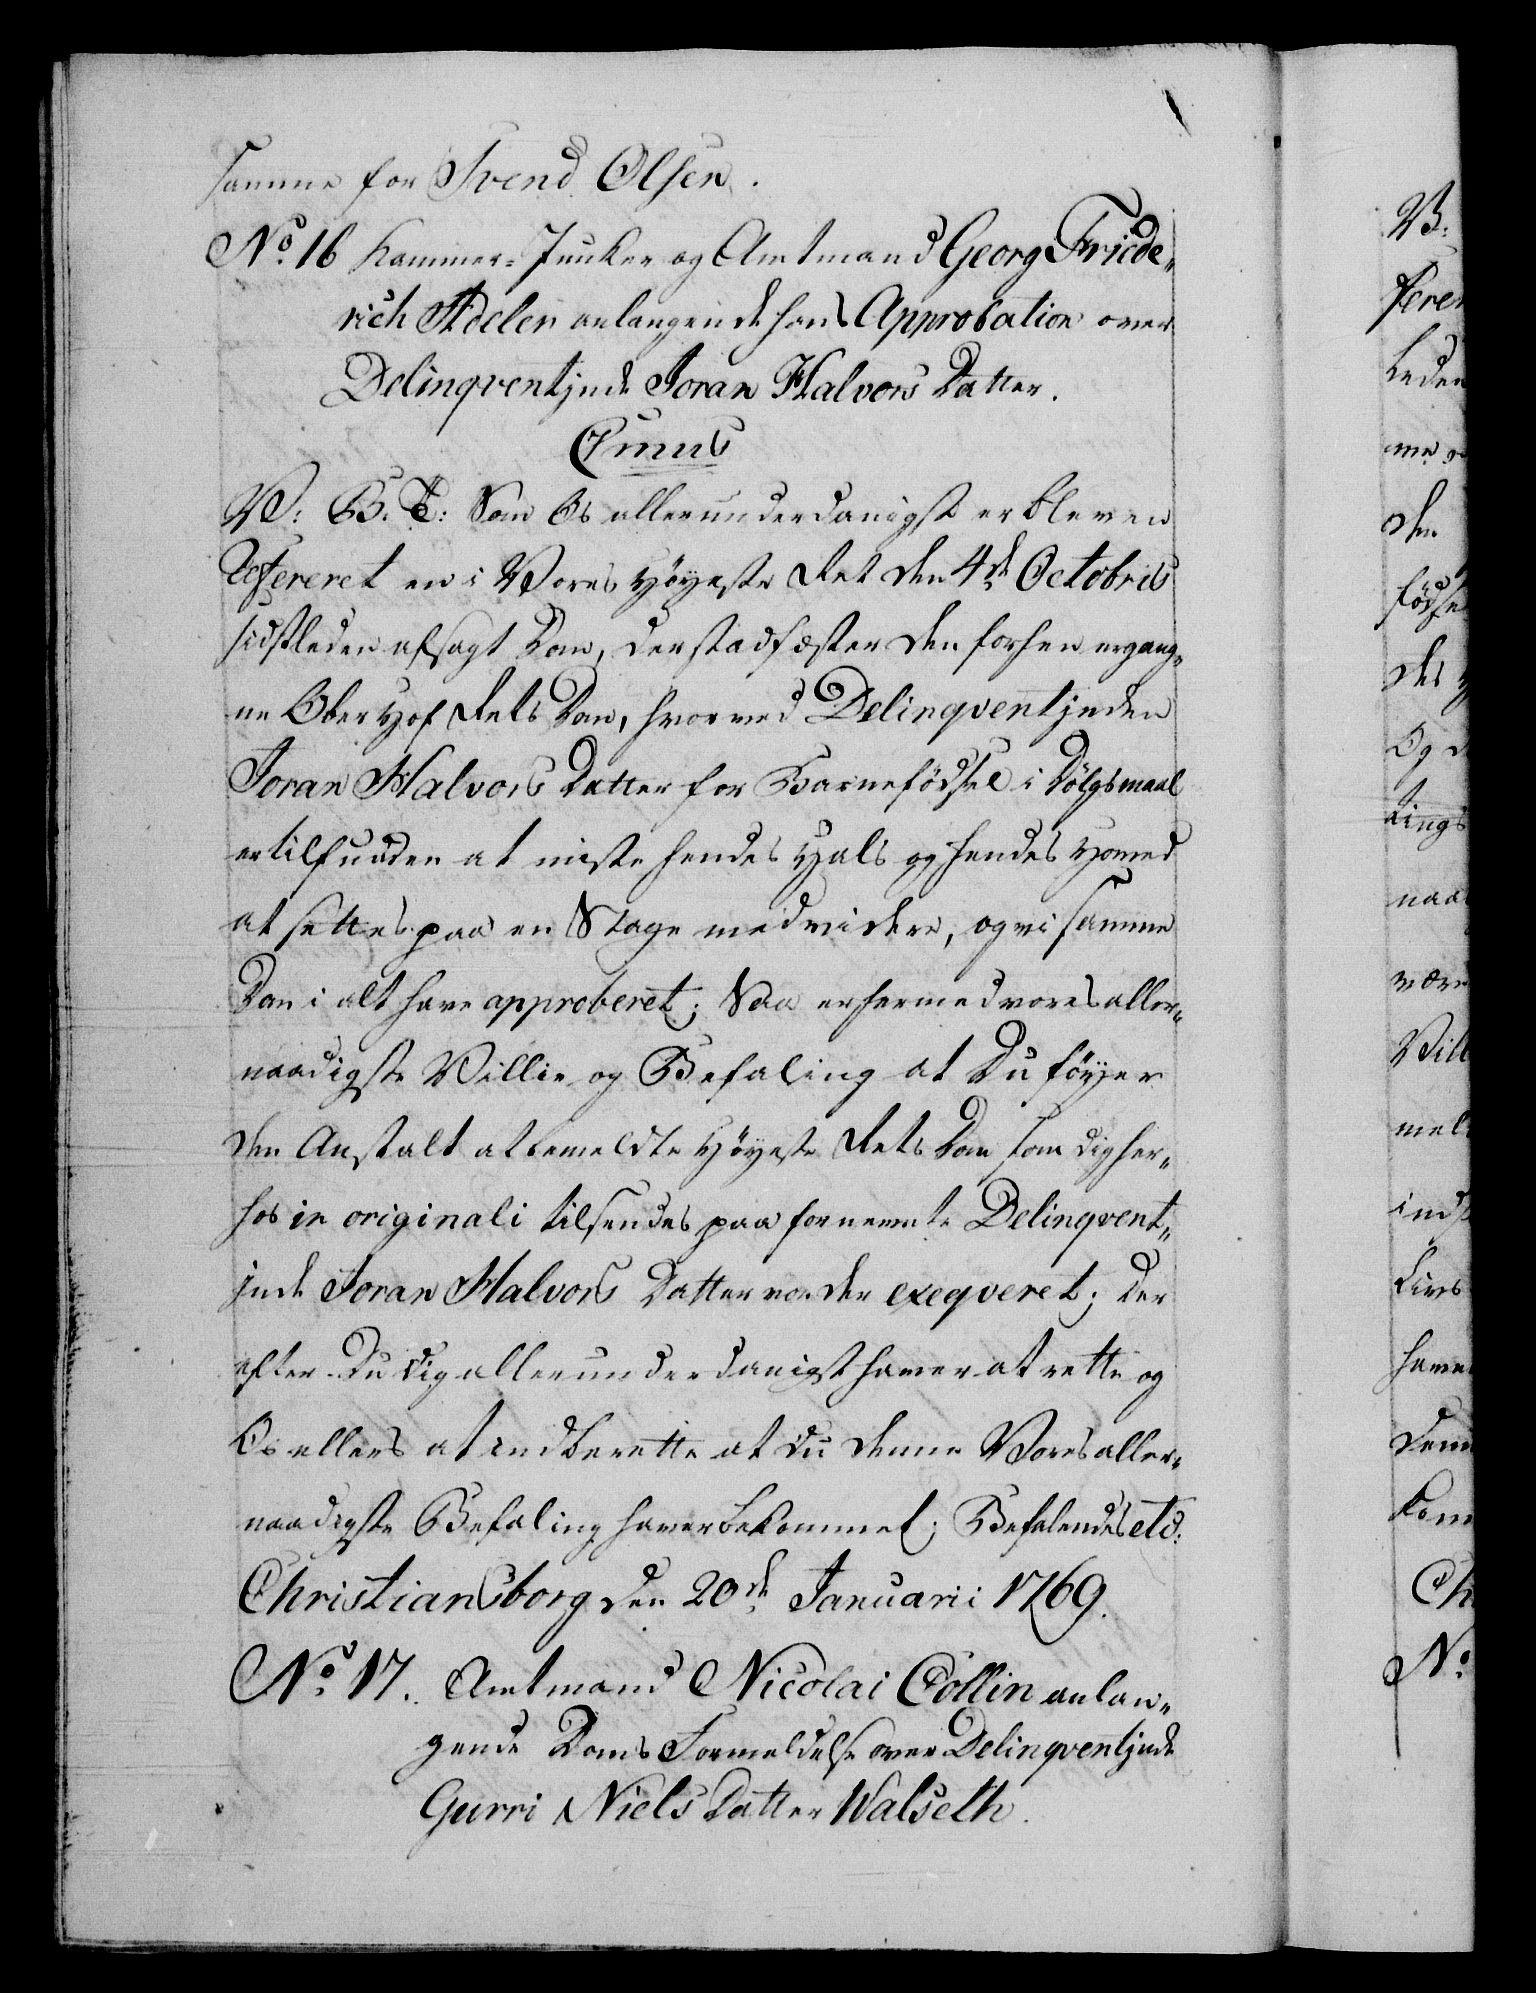 samme for Svend Olsen.
No. 16 Kammer-Junker og Amtmand Georg Friede„
rich Adeler anlangende hans Approbation over
Delinqventjnde Joran Halvors Datter.
V: G. T: Som Os allerunderdanigst er bleven
refereret en i Vores Høyeste Ret den 4de Octobris
sidstleden afsagt Dom, der stadfæster den forhen ergang„
ne Ober Hof Rets Dom, hvorved Delinqventjnden
Joran Halvors Datter for Barnefödsel i Dölgsmaal
er tilfunden at miste hendes Hals og hendes Hoved
at settes paa en Stage med videre, og vi samme
Dom i alt have approberet; Saa er hermed vores aller„
naadigste Villie og Befaling at Du föyer
den Anstalt at bemeldte Høyeste Rets Dom som dig her„
hos in originali tilsendes paa fornevnte Delinqvent„
jnde Joran Halvors Datter vorder exeqveret; Der
efter Du dig allerunderdanigst haver at rette og
Os ellers at indberette at du denne Vores aller„
naadigste Befaling haver bekommet; Befalendes etc:
Christiansborg den 20de Januarii 1769.
No. 17. Amtmand Nicolai Collin anlan„
gende Doms Formeldelse over Delinqventjnde
Gurri Niels Datter Walseth.